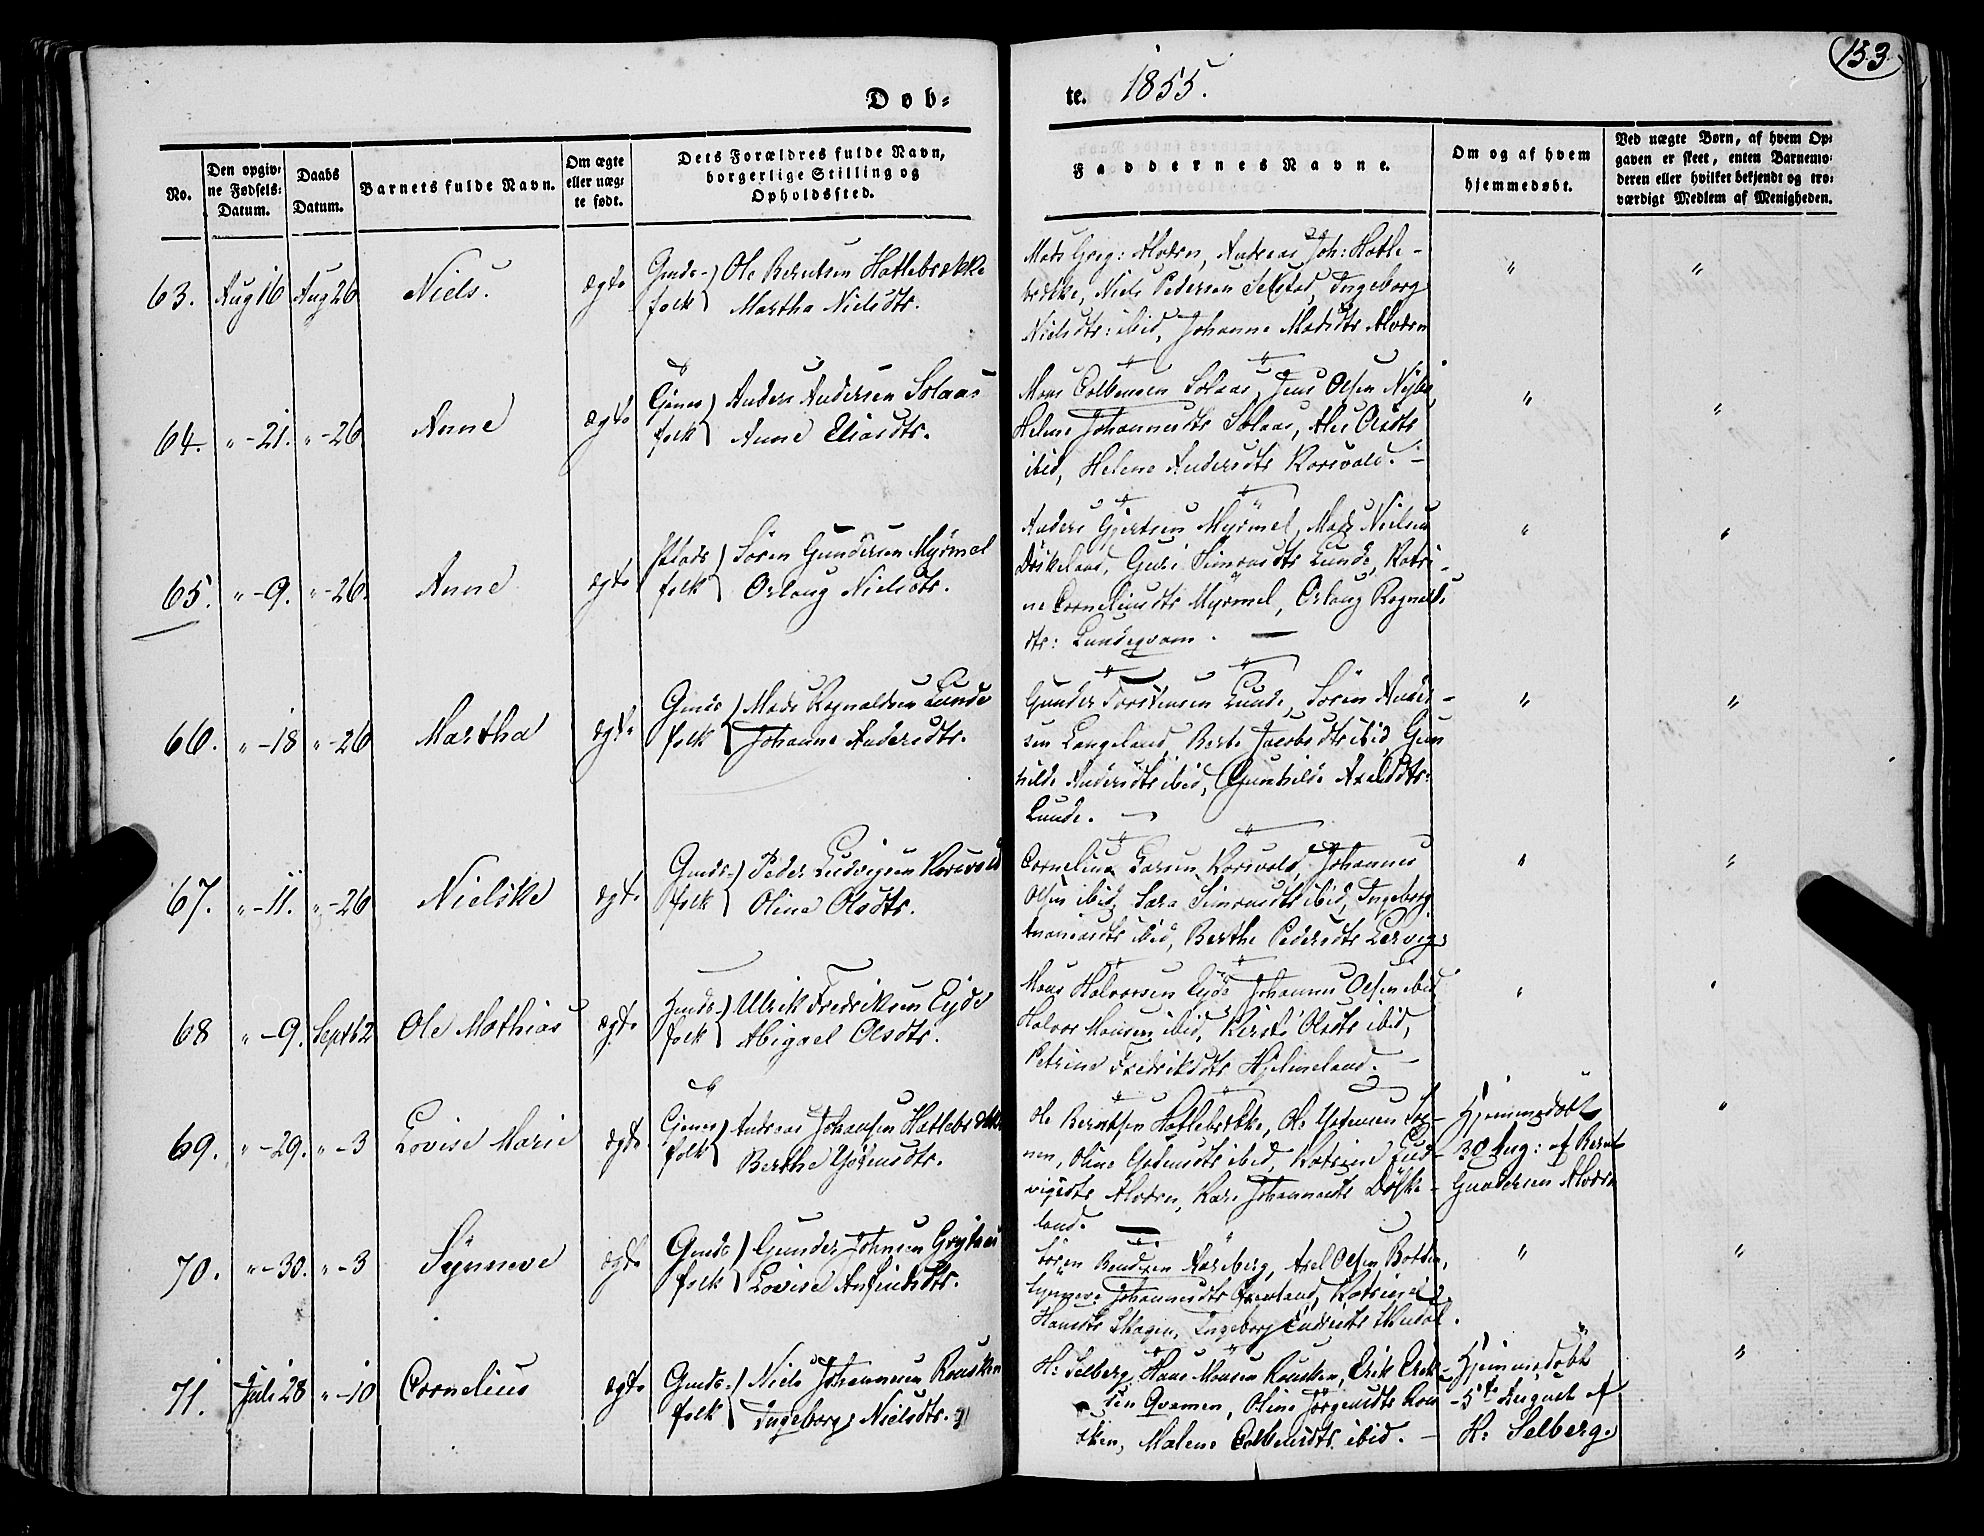 153
Døb-
te. 1855.
No.
Den opgiv-
ne Fødsels-
Datum.
Daabs
Datum.
Barnets fulde Navn.
Om ægte
eller uæg-
te født.
Dets Forældres fulde Navn,
borgerlige Stilling og
Opholdssted.
Faddernes Navne.
Om og af hvem
hjemmedøbt.
Ved uægte Børn, af hvem Op-
gaven er skeet, enten Barnemo-
deren eller hvilket bekjendt og tro-
værdigt Medlem af Menigheden.
63. Aug 16 Aug 26 Niels. ægte
Gmds- folk
Ole Berntsen Hatlebrække
Martha Nielsdtr.
Mads Greg: Alværn, Andreas Joh: Hatle-
brække, Niels Pedersen Teksted, Ingeborg
Nielsdtr: ibid, Johanne Madsdtr Alværn
" "
64. " - 21. " - 26 Anne ægte
folk
Anders Andersen Solaas
Anne Eliasdtr.
Mons Colbensen Solaas, Jens Olsen
Helene Johannesdtr Solaas, Olsdtr
ibid, Helene Andersdtr Korsvold. -
" "
65. " - 9. " - 26. Anne ægte
Plads folk
Søren Gundersen Myrmel
Orlaug Nielsdtr.
Anders Gjertsen Myrmel, Mads Nielsen
Døskeland, Guri Simonsdtr Lunde, Katri-
ne Corneliusdtr Myrmel, Orlaug Ragnalds
dtr: Lundeqvam. -
" "
66. " - 18 " - 26 Martha ægte
Gmds folk
Mads Ragnaldsen Lunde
Johanne Andersdtr.
Gunder Torstensen Lunde, Søren Anders-
sen Langeland, Berte Jacobsdtr ibid, Gun
hilde Andersdtr ibid, Gunhilde Axelsdtr:
Lunde. -
" "
67. " - 11. " - 26 Nielske ægte
Gmds- folk
Peder Ludvigsen Korsvold
Oline Olsdtr.
Cornelius Larsen Korsvold, Johannes
Olsen ibid, Sara Simonsdtr ibid, Ingeborg
Ananiasdtr ibid, Berthe Pedersdtr Lervig
" "
68 " - 9. Septb 2 Ole Mathias ægte
folk
Ulrik Fredriksen Eyde
Abigael Olsdtr.
Mons Halvorsen Eyde Johannes Olsen ibid,
Halvor Monsen ibid, Kirsti Olsdtr ibid,
Petrine Fredriksdtr Hjelmeland. -
" "
69. " - 29. " - 3 Lovise Marie ægte
folk
Andreas Johansen Hatlebrække
Berthe Gotensdtr.
Ole Berntsen Hatlebrække, Ole
Oline ibid, Katrine Lud-
vigsdtr Alværn, Kari Johannesdtr Døske-
land.
Hjemmedøbt
30 Aug: af Bernt
Gundersen Alværn
"
70. " - 30. " - 3 Synneve ægte
Gmds folk
Gunder Johnsen Grytaas
Lovise Ansteensdtr.
Søren Bendixen Aarberg, Axel Olsen Botten,
Synneve Johannesdtr Katrine
Hansdtr Skagen, Ingeborg
" "
71. Juli 28 " - 10 Cornelius ægte
Gmds- folk
Niels Johannesen Rousken
Ingeborg Nielsdtr.
H: Selberg, Hans Monsen Rousken, Erik Erik-
sen Qvamen, Oline Jørgensdtr Rou
sken, Malene Colbensdtr. ibid. -
Hjemmedøbt
5te August af
H: Selberg.
"